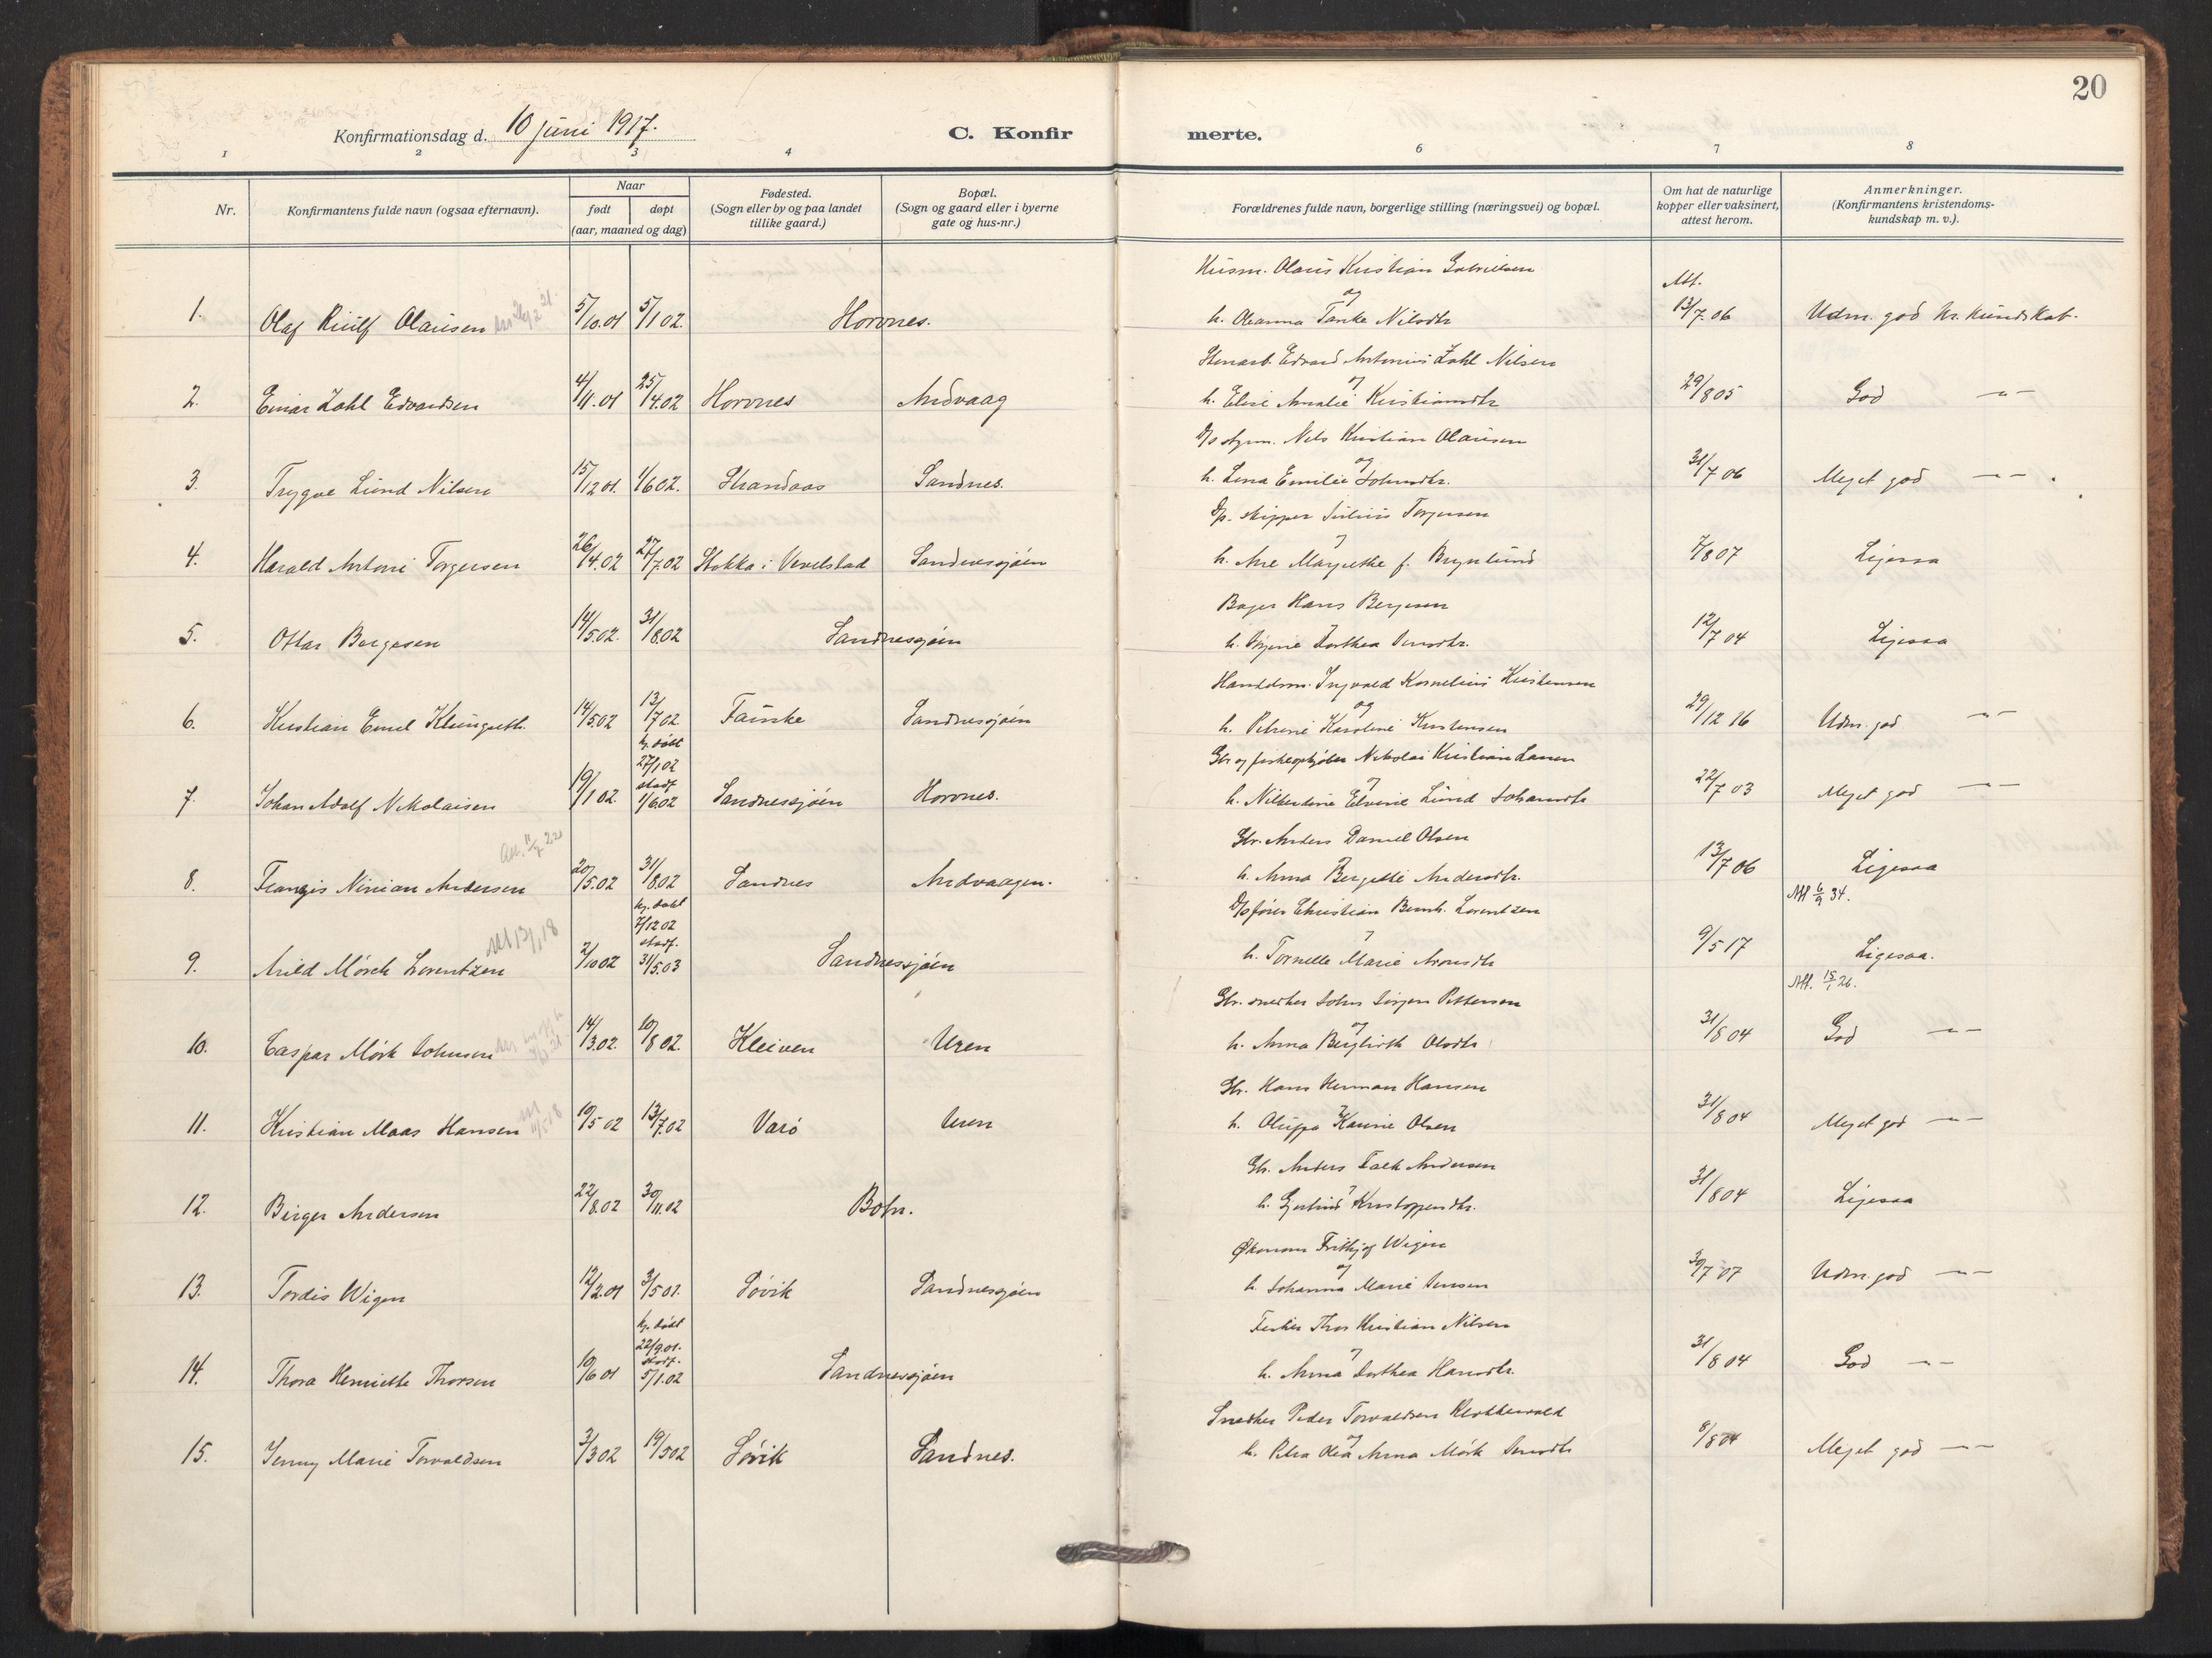 20
Konfirmationsdag d. 10 juni 1917. C. Konfir merte.
1 2 3 4 6 7 8
Nr. Konfirmantens fulde navn (ogsaa efternavn). Naar født døpt (aar, maaned og dag) Fødested. (Sogn eller by og paa landet tillike gaard.) Bopæl. (Sogn og gaard eller i byerne gate og hus-nr.) Forældrenes fulde navn, borgerlige stilling (næringsvei) og bopæl. Om hat de naturlige kopper eller vaksinert, attest herom. Anmerkninger. (Konfirmantens kristendomskundskap m. v.).
Husm. Olaus Kristian Gabrielsen
Att.
og
1. Olaf Riulf Olausen 5/10.01 5/1 02. Horvnes. h. Oleanna Tanke Nilsdtr 13/7.06 Udm. god kr. kundskab.
Stenarb. Edvard Antonius Zahl Nilsen
og
2. Einar Zahl Edvardsen 4/11.01 25/4.02 Horvnes Andvaag h. Elise Amalie Kristiansdtr 29/8 05 God -"-
D/s styrm. Nils Kristian Olausen
og
3. Trygve Lund Nilsen 15/12 01. 1/6 02. Strandaas Sandnes. h. Lena Emilie Johnsdtr. 31/7 06 Meget god -"-
D/s. skipper Julius Torgersen
4. Harald Antoni Torgersen 26/4.02 27/7.02 Stokka i Vevelstad Sandnessjøen h. Ane Margrethe f. Brynlund 7/8 07 Ligesaa
Bager Hans Bergesen
5. Ottar Bergesen 14/5.02. 31/8.02 Sandnessjøen h. Dorthea Jensdtr. 12/7 04 Ligesaa
Handelsm. Ingvald Kornelius Kristensen
og
6. Kristian Emil Klungseth. 14/5.02 13/7.02 Fauske Sandnessjøen h. Petrine Karoline Kristensen 29/12 16 Udm. god -"-
hj. døbt
27/1 02
stadf.
Gbr og fiskeopkjøber Nikolai Kristian Larsen
7. Johan Adolf Nikolaisen 19/1 02. 1/6 02 Sandnessjøen Horvnes. h. Nilsentine Elvine Lund Johansdtr 22/7 03 Meget god -"-
Gbr. Anders Daniel Olsen
8. Frangis Ninian Andersen 20/5.02 31/8.02 Sandnes Andvaagen. h. Anna Bergitte Andersdtr. 13/7 06 Ligesaa
Att 6/9 34.
hj. døbt
7/12 02
stadf.
D/s fører Christian Bernh. Lorentzen
Att 13/1 18
9. Arild Mörch Lorentzen 2/10 02 31/5.03 Sandnessjøen h. Tornelle Marie Aronsdtr 9/5 17 Ligesaa.
Att. 15/1 26.
Gbr. snedker Johs Jørgen Pettersen
og
10. Caspar Mörk Johnsen 14/3.02. 10/8 02. Kleiven Uren h. Anna Berglioth Olsdtr 31/8 04 God -"-
Gbr. Hans Herman Hansen
11. Kristian Maas Hansen 19/5 02 13/7.02 Varø Uren h. Oluffa Karine Olsen 31/8 04 Meget god -"-
Gbr. Anders Falk Andersen
12. Birger Andersen 22/8.02 30/11.02 Botn. h. Gjertrud Kristoffersdtr. 31/8 04 Ligesaa
Økonom Frithjof Wigen
og
13. Tordis Wigen 12/2.01 3/5 01. Søvik Sandnessjøen h. Johanna Marie Jensen 30/7 07 Udm. god -"-
hj. døbt
22/9.01.
stadf.
Fisker Thor Kristian Nilsen
14. Thora Henriette Thorsen 10/6 01 5/1.02 Sandnessjøen h. Anna Dorthea Hansdtr. 31/8 04 God -"-
Snedker Peder Torvaldsen Klubbenvold
og
15. Jenny Marie Torvaldsen 3/3 02 19/5 02 Søvik Sandnes. h. Petra Olea Anna Mörk Jensdtr 8/8 04 Meget god -"-